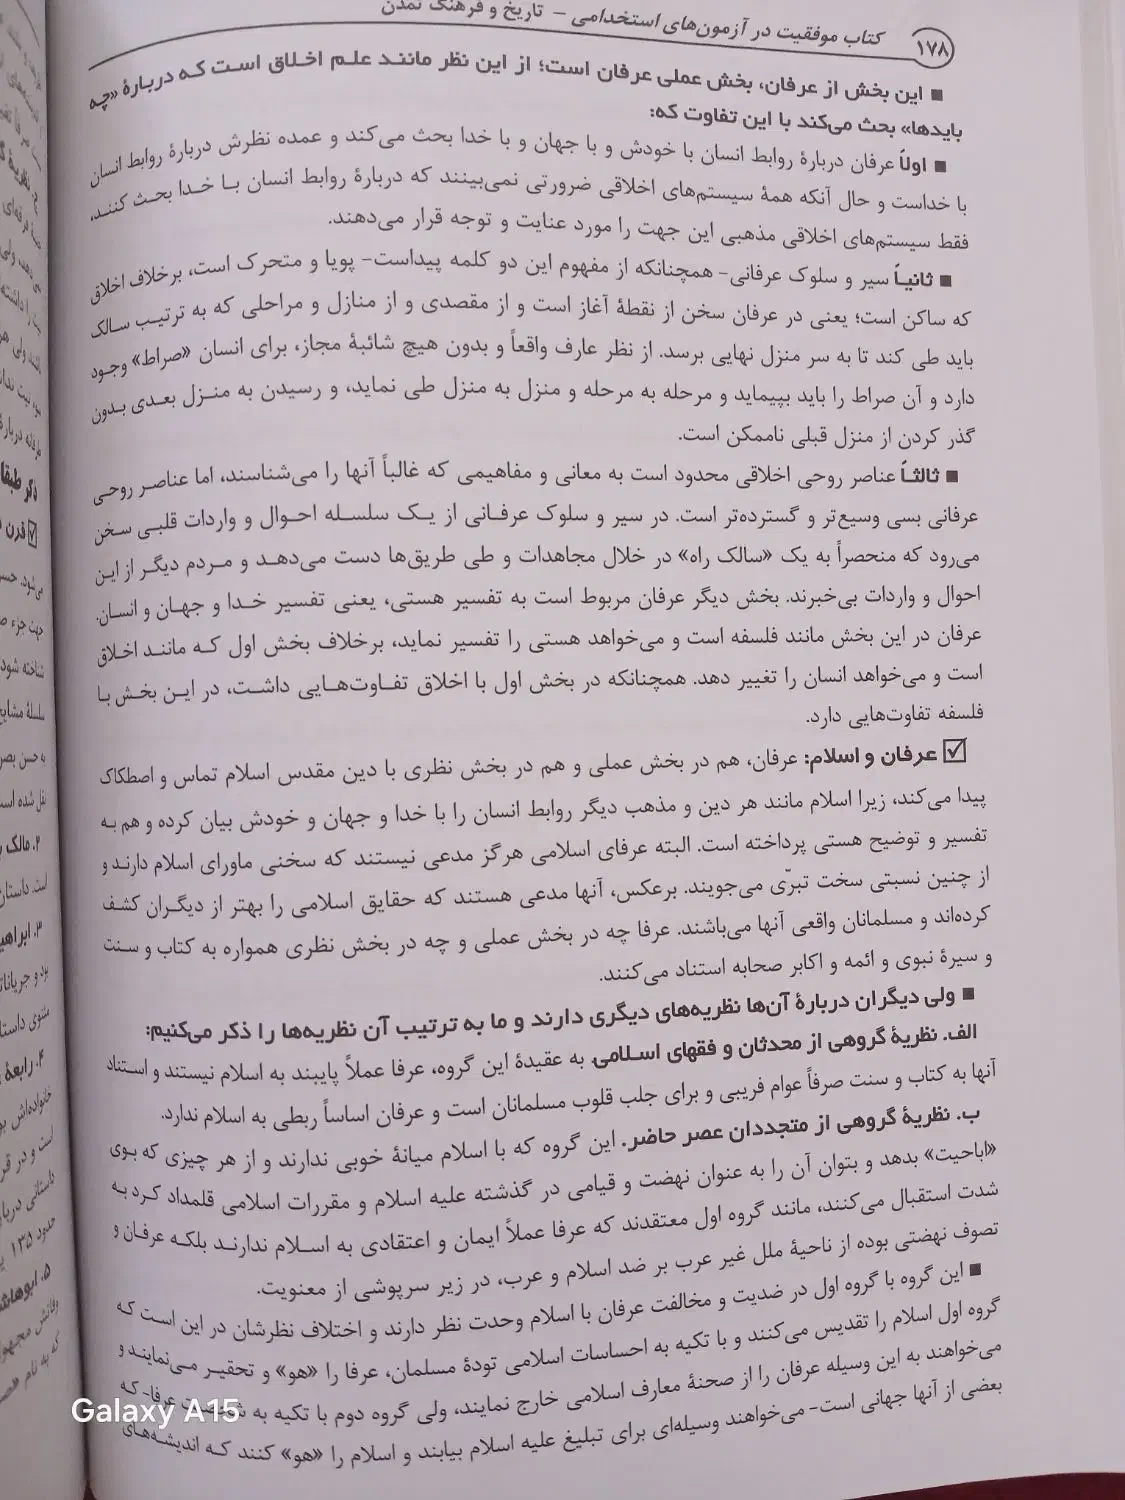 ۱۷۸
کتاب موفقیت در آزمون‌های استخدامی – تاریخ و فرهنگ تمدن
■ این بخش از عرفان، بخش عملی عرفان است؛ از این نظر مانند علم اخلاق است که دربارهٔ «چه
بایدها» بحث می‌کند با این تفاوت که:
■ اولاً عرفان دربارهٔ روابط انسان با خودش و با جهان و با خدا بحث می‌کند و عمده نظرش دربارهٔ روابط انسان
با خداست و حال آنکه همهٔ سیستم‌های اخلاقی ضرورتی نمی‌بینند که دربارهٔ روابط انسان با خدا بحث کنند،
فقط سیستم‌های اخلاقی مذهبی این جهت را مورد عنایت و توجه قرار می‌دهند.
■ ثانیاً سیر و سلوک عرفانی- همچنانکه از مفهوم این دو کلمه پیداست- پویا و متحرک است، برخلاف اخلاق
که ساکن است؛ یعنی در عرفان سخن از نقطهٔ آغاز است و از مقصدی و از منازل و مراحلی که به ترتیب سالک
باید طی کند تا به سر منزل نهایی برسد. از نظر عارف واقعاً و بدون هیچ شائبهٔ مجاز، برای انسان «صراط» وجود
دارد و آن صراط را باید بپیماید و مرحله به مرحله و منزل به منزل طی نماید، و رسیدن به منزل بعدی بدون
گذر کردن از منزل قبلی ناممکن است.
■ ثالثاً عناصر روحی اخلاقی محدود است به معانی و مفاهیمی که غالباً آنها را می‌شناسند، اما عناصر روحی
عرفانی بسی وسیع‌تر و گسترده‌تر است. در سیر و سلوک عرفانی از یک سلسله احوال و واردات قلبی سخن
می‌رود که منحصراً به یک «سالک راه» در خلال مجاهدات و طی طریق‌ها دست می‌دهد و مردم دیگر از این
احوال و واردات بی‌خبرند. بخش دیگر عرفان مربوط است به تفسیر هستی، یعنی تفسیر خدا و جهان و انسان.
عرفان در این بخش مانند فلسفه است و می‌خواهد هستی را تفسیر نماید، برخلاف بخش اول که مانند اخلاق
است و می‌خواهد انسان را تغییر دهد. همچنانکه در بخش اول با اخلاق تفاوت‌هایی داشت، در این بخش با
فلسفه تفاوت‌هایی دارد.
☑ عرفان و اسلام: عرفان، هم در بخش عملی و هم در بخش نظری با دین مقدس اسلام تماس و اصطکاک
پیدا می‌کند، زیرا اسلام مانند هر دین و مذهب دیگر روابط انسان را با خدا و جهان و خودش بیان کرده و هم به
تفسیر و توضیح هستی پرداخته است. البته عرفای اسلامی هرگز مدعی نیستند که سخنی ماورای اسلام دارند و
از چنین نسبتی سخت تبرّی می‌جویند. برعکس، آنها مدعی هستند که حقایق اسلامی را بهتر از دیگران کشف
کرده‌اند و مسلمانان واقعی آنها می‌باشند. عرفا چه در بخش عملی و چه در بخش نظری همواره به کتاب و سنت
و سیرهٔ نبوی و ائمه و اکابر صحابه استناد می‌کنند.
■ ولی دیگران دربارهٔ آن‌ها نظریه‌های دیگری دارند و ما به ترتیب آن نظریه‌ها را ذکر می‌کنیم:
الف. نظریهٔ گروهی از محدثان و فقهای اسلامی. به عقیدهٔ این گروه، عرفا عملاً پایبند به اسلام نیستند و استناد
آنها به کتاب و سنت صرفاً عوام فریبی و برای جلب قلوب مسلمانان است و عرفان اساساً ربطی به اسلام ندارد.
ب. نظریهٔ گروهی از متجددان عصر حاضر. این گروه که با اسلام میانهٔ خوبی ندارند و از هر چیزی که بوی
«اباحیت» بدهد و بتوان آن را به عنوان نهضت و قیامی در گذشته علیه اسلام و مقررات اسلامی قلمداد کرد به
شدت استقبال می‌کنند، مانند گروه اول معتقدند که عرفا عملاً ایمان و اعتقادی به اسلام ندارند بلکه عرفان و
تصوف نهضتی بوده از ناحیهٔ ملل غیر عرب بر ضد اسلام و عرب، در زیر سرپوشی از معنویت.
■ این گروه با گروه اول در ضدیت و مخالفت عرفان با اسلام وحدت نظر دارند و اختلاف نظرشان در این است که
گروه اول اسلام را تقدیس می‌کنند و با تکیه به احساسات اسلامی تودهٔ مسلمان، عرفا را «هو» و تحقیر می‌نمایند و
می‌خواهند به این وسیله عرفان را از صحنهٔ معارف اسلامی خارج نمایند، ولی گروه دوم با تکیه به عرفا- که
بعضی از آنها جهانی است- می‌خواهند وسیله‌ای برای تبلیغ علیه اسلام بیابند و اسلام را «هو» کنند که اندیشه‌های
Galaxy A15